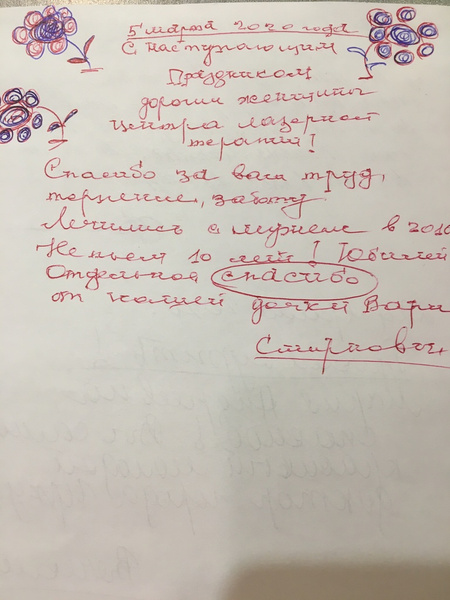 5 марта 2020 года
С наступающим
Праздником
дорогие женщины
центра лазерной
терапии!
Спасибо за ваш труд,
терпение, заботу
Лечились с мужем в 2010
Не пьем 10 лет! Юбилей
Отдельное спасибо
от нашей дочки Вари
Смирновы